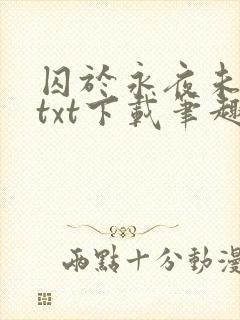 囚於永夜未
txt下載筆趣
兩點十分動漫